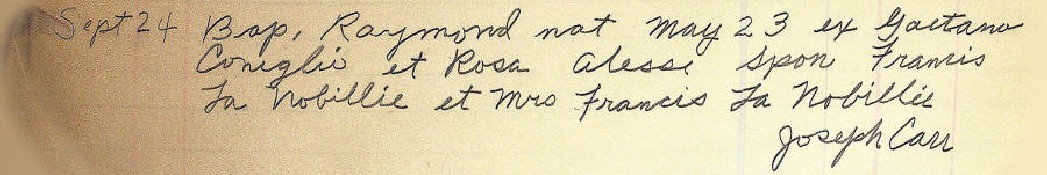 Sept 24 Bap, Raymond nat May 23 ex Gaetano
Coniglio et Rosa Alessi Spon Francis
La Nobillie et Mrs Francis La Nobillie
Joseph Carr